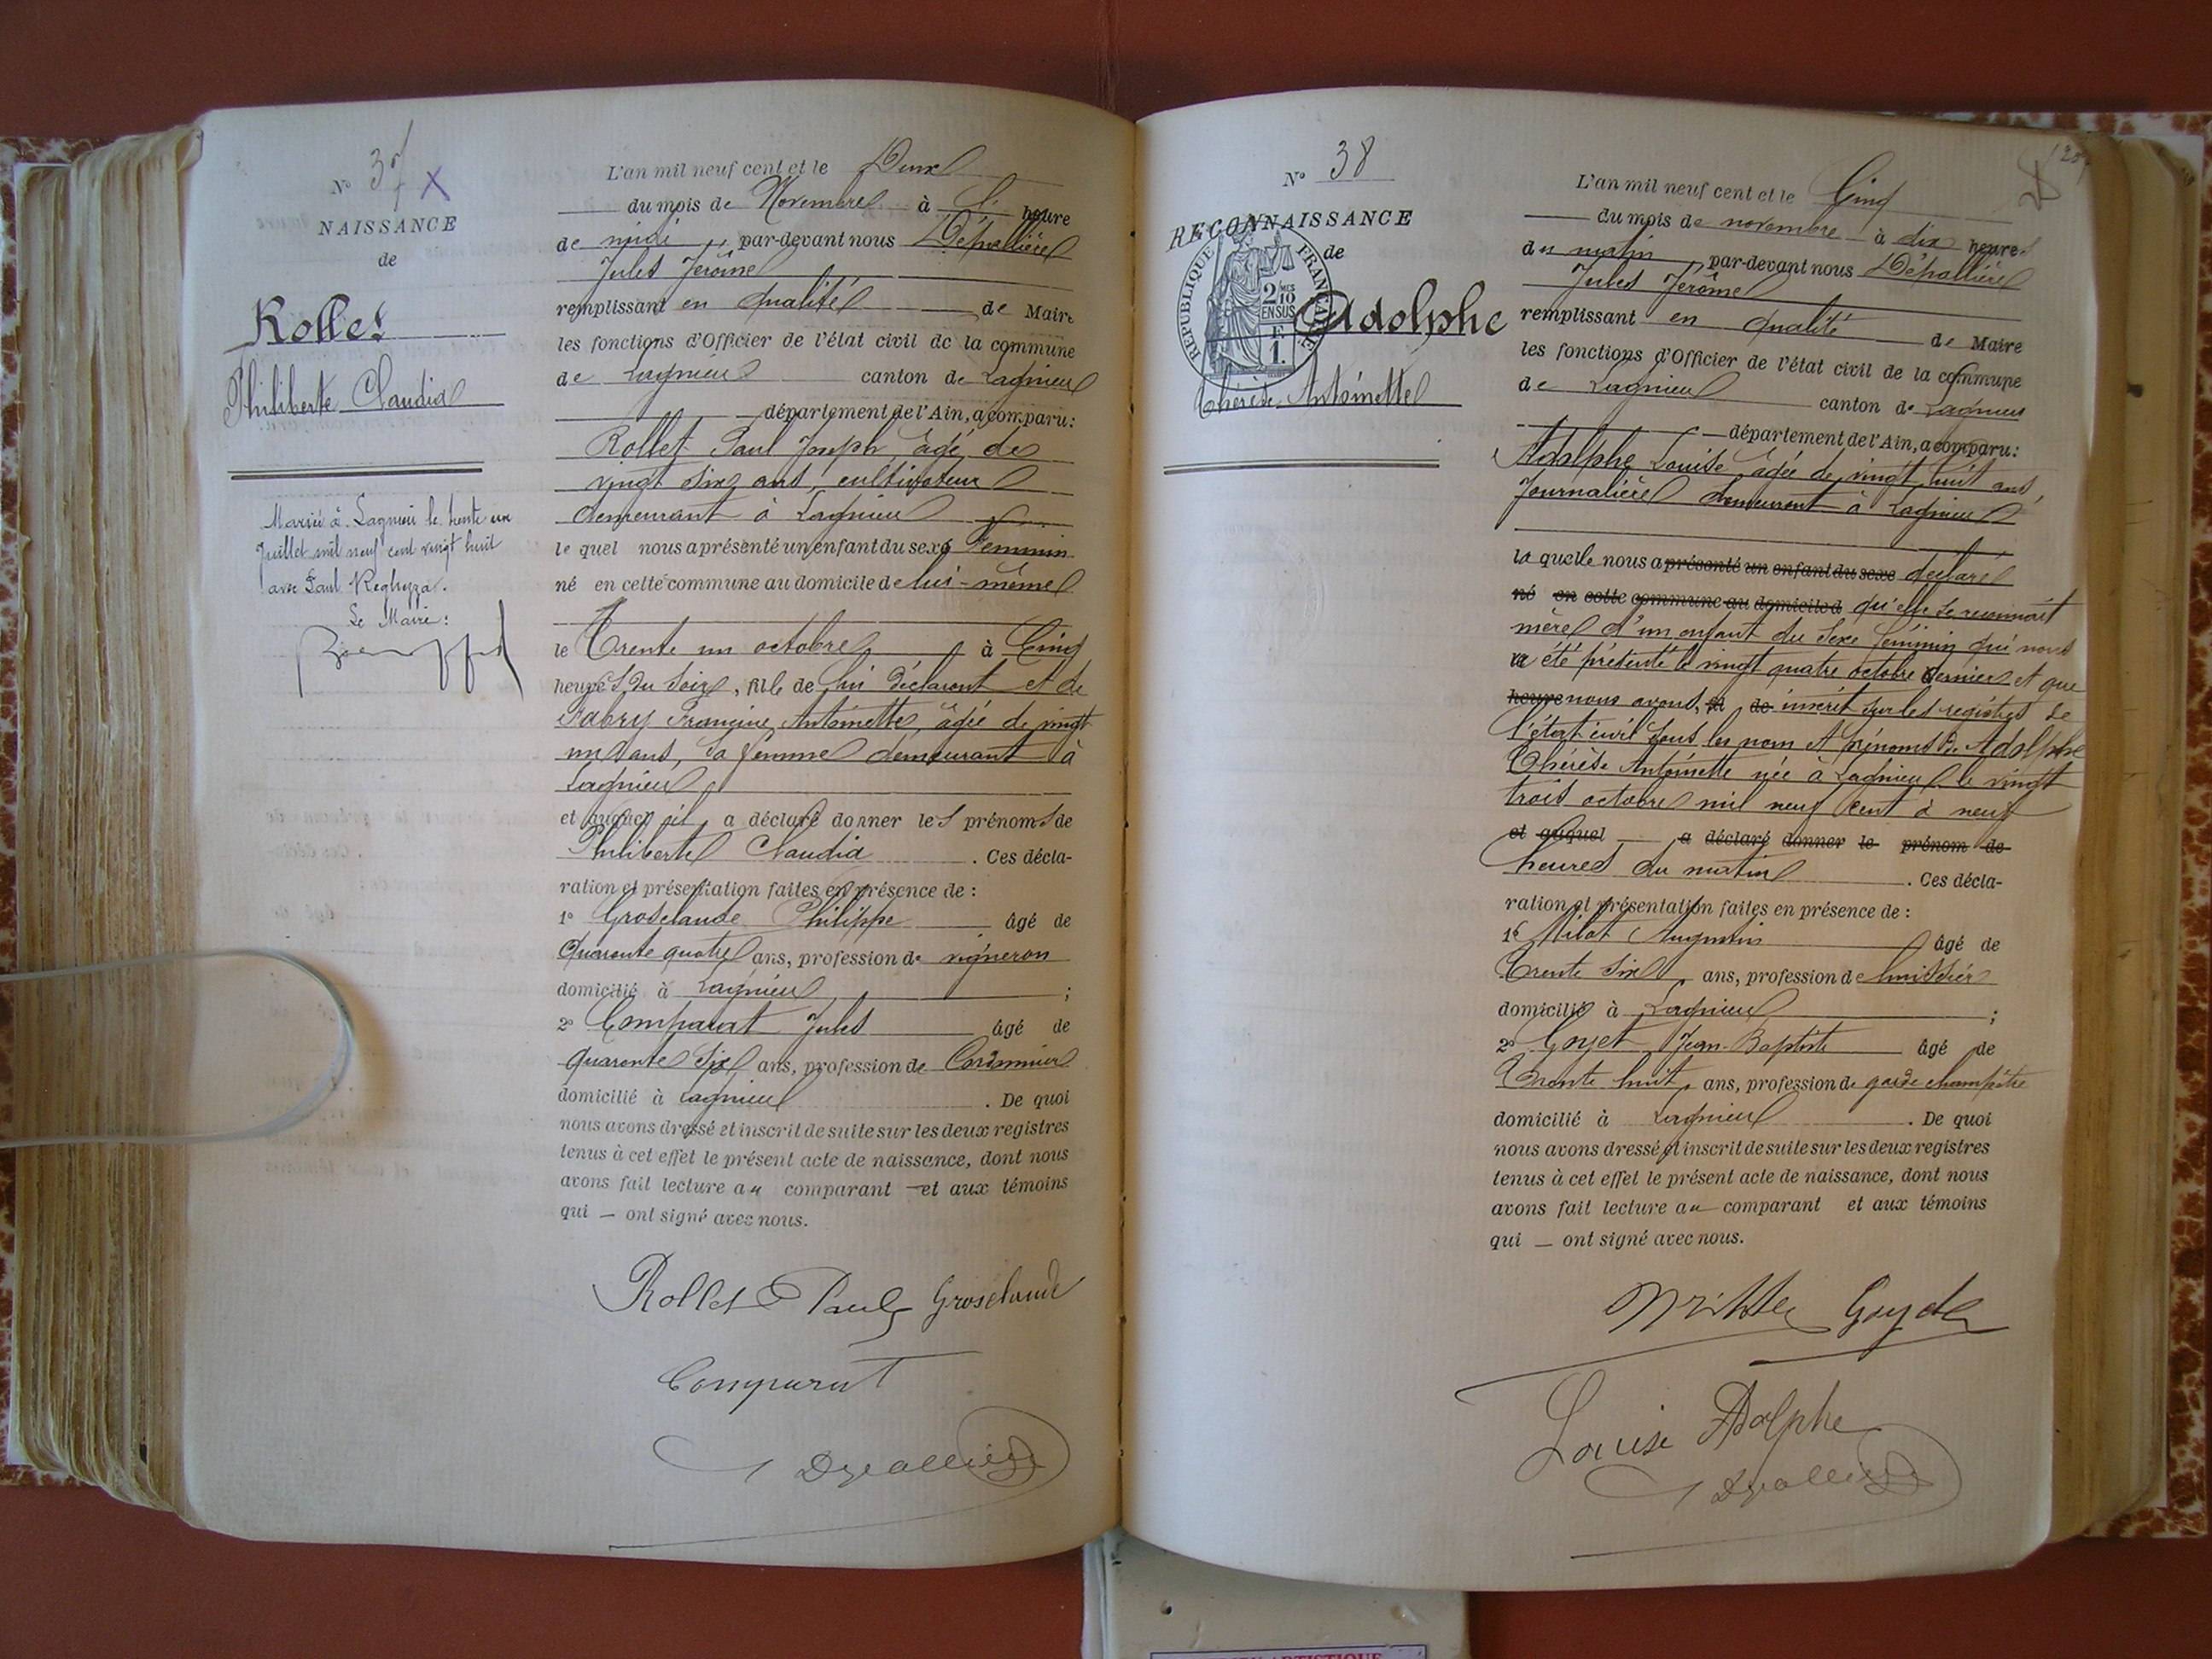 No 37 X
NAISSANCE
de
Rollet
Philiberte Claudia
Mariée à Lagnieu le trente un
Juillet mil neuf cent vingt huit
avec Paul Reghezza.
Le Maire:
L'an mil neuf cent et le Deux
du mois de Novembre à l' heure
de midi par-devant nous Dépallière
Jules Jérôme
remplissant en qualité de Maire
les fonctions d'Officier de l'état civil de la commune
de Lagnieu canton de Lagnieu
département de l'Ain, a comparu:
Rollet Paul Joseph, âgé de
vingt six ans, cultivateur
demeurant à Lagnieu
lequel nous a présenté un enfant du sexe Feminin
né en cette commune au domicile de lui-même
le Trente un octobre à Cinq
heures du Soir, fille de lui déclarant et de
Fabry Françine Antoinette, âgée de vingt
un ans, sa femme demeurant à
Lagnieu
et auquel il a déclaré donner les prénoms de
Philiberte Claudia. Ces décla-
ration et présentation faites en présence de :
1° Groselaude Philippe âgé de
Quarante quatre ans, profession de vigneron
domicilié à Lagnieu ;
2° Comparat Jules âgé de
quarante six ans, profession de Cordonnier
domicilié à Lagnieu. De quoi
nous avons dressé et inscrit de suite sur les deux registres
tenus à cet effet le présent acte de naissance, dont nous
avons fait lecture au comparant et aux témoins
qui ont signé avec nous.
Rollet Paul Groselaude
Comparat
Dépallière
No 38
RECONNAISSANCE
de
REPUBLIQUE FRANÇAISE
2/10 MES
EN SUS
F
1.
Adolphe
Thérèse Antoinette
L'an mil neuf cent et le Cinq
du mois de novembre à dix heures
du matin par-devant nous Dépallière
Jules Jérôme
remplissant en qualité de Maire
les fonctions d'Officier de l'état civil de la commune
de Lagnieu canton de Lagnieu
département de l'Ain, a comparu:
Adolphe Louise âgée de vingt huit ans,
Journalière demeurant à Lagnieu
laquelle nous a présenté un enfant du sexe déclaré
né en cette commune au domicile d qu'elle se reconnait
mère d'un enfant du sexe féminin qui nous
a été présenté le vingt quatre octobre dernier et que
heure nous avons, fil de inscrit sur les registres de
l'état civil sous les nom et prénoms de Adolphe
Thérèse Antoinette née à Lagnieu le vingt
trois octobre mil neuf cent à neuf
et auquel a déclaré donner le prénom de
heures du matin. Ces décla-
ration et présentation faites en présence de :
1° âgé de
Trente six ans, profession de huissier
domicilié à Lagnieu ;
2° Goyet Jean-Baptiste âgé de
Trente huit ans, profession de garde champêtre
domicilié à Lagnieu. De quoi
nous avons dressé et inscrit de suite sur les deux registres
tenus à cet effet le présent acte de naissance, dont nous
avons fait lecture au comparant et aux témoins
qui ont signé avec nous.
Goyet
Louise Adolphe
Dépallière
ARTISTIQUE